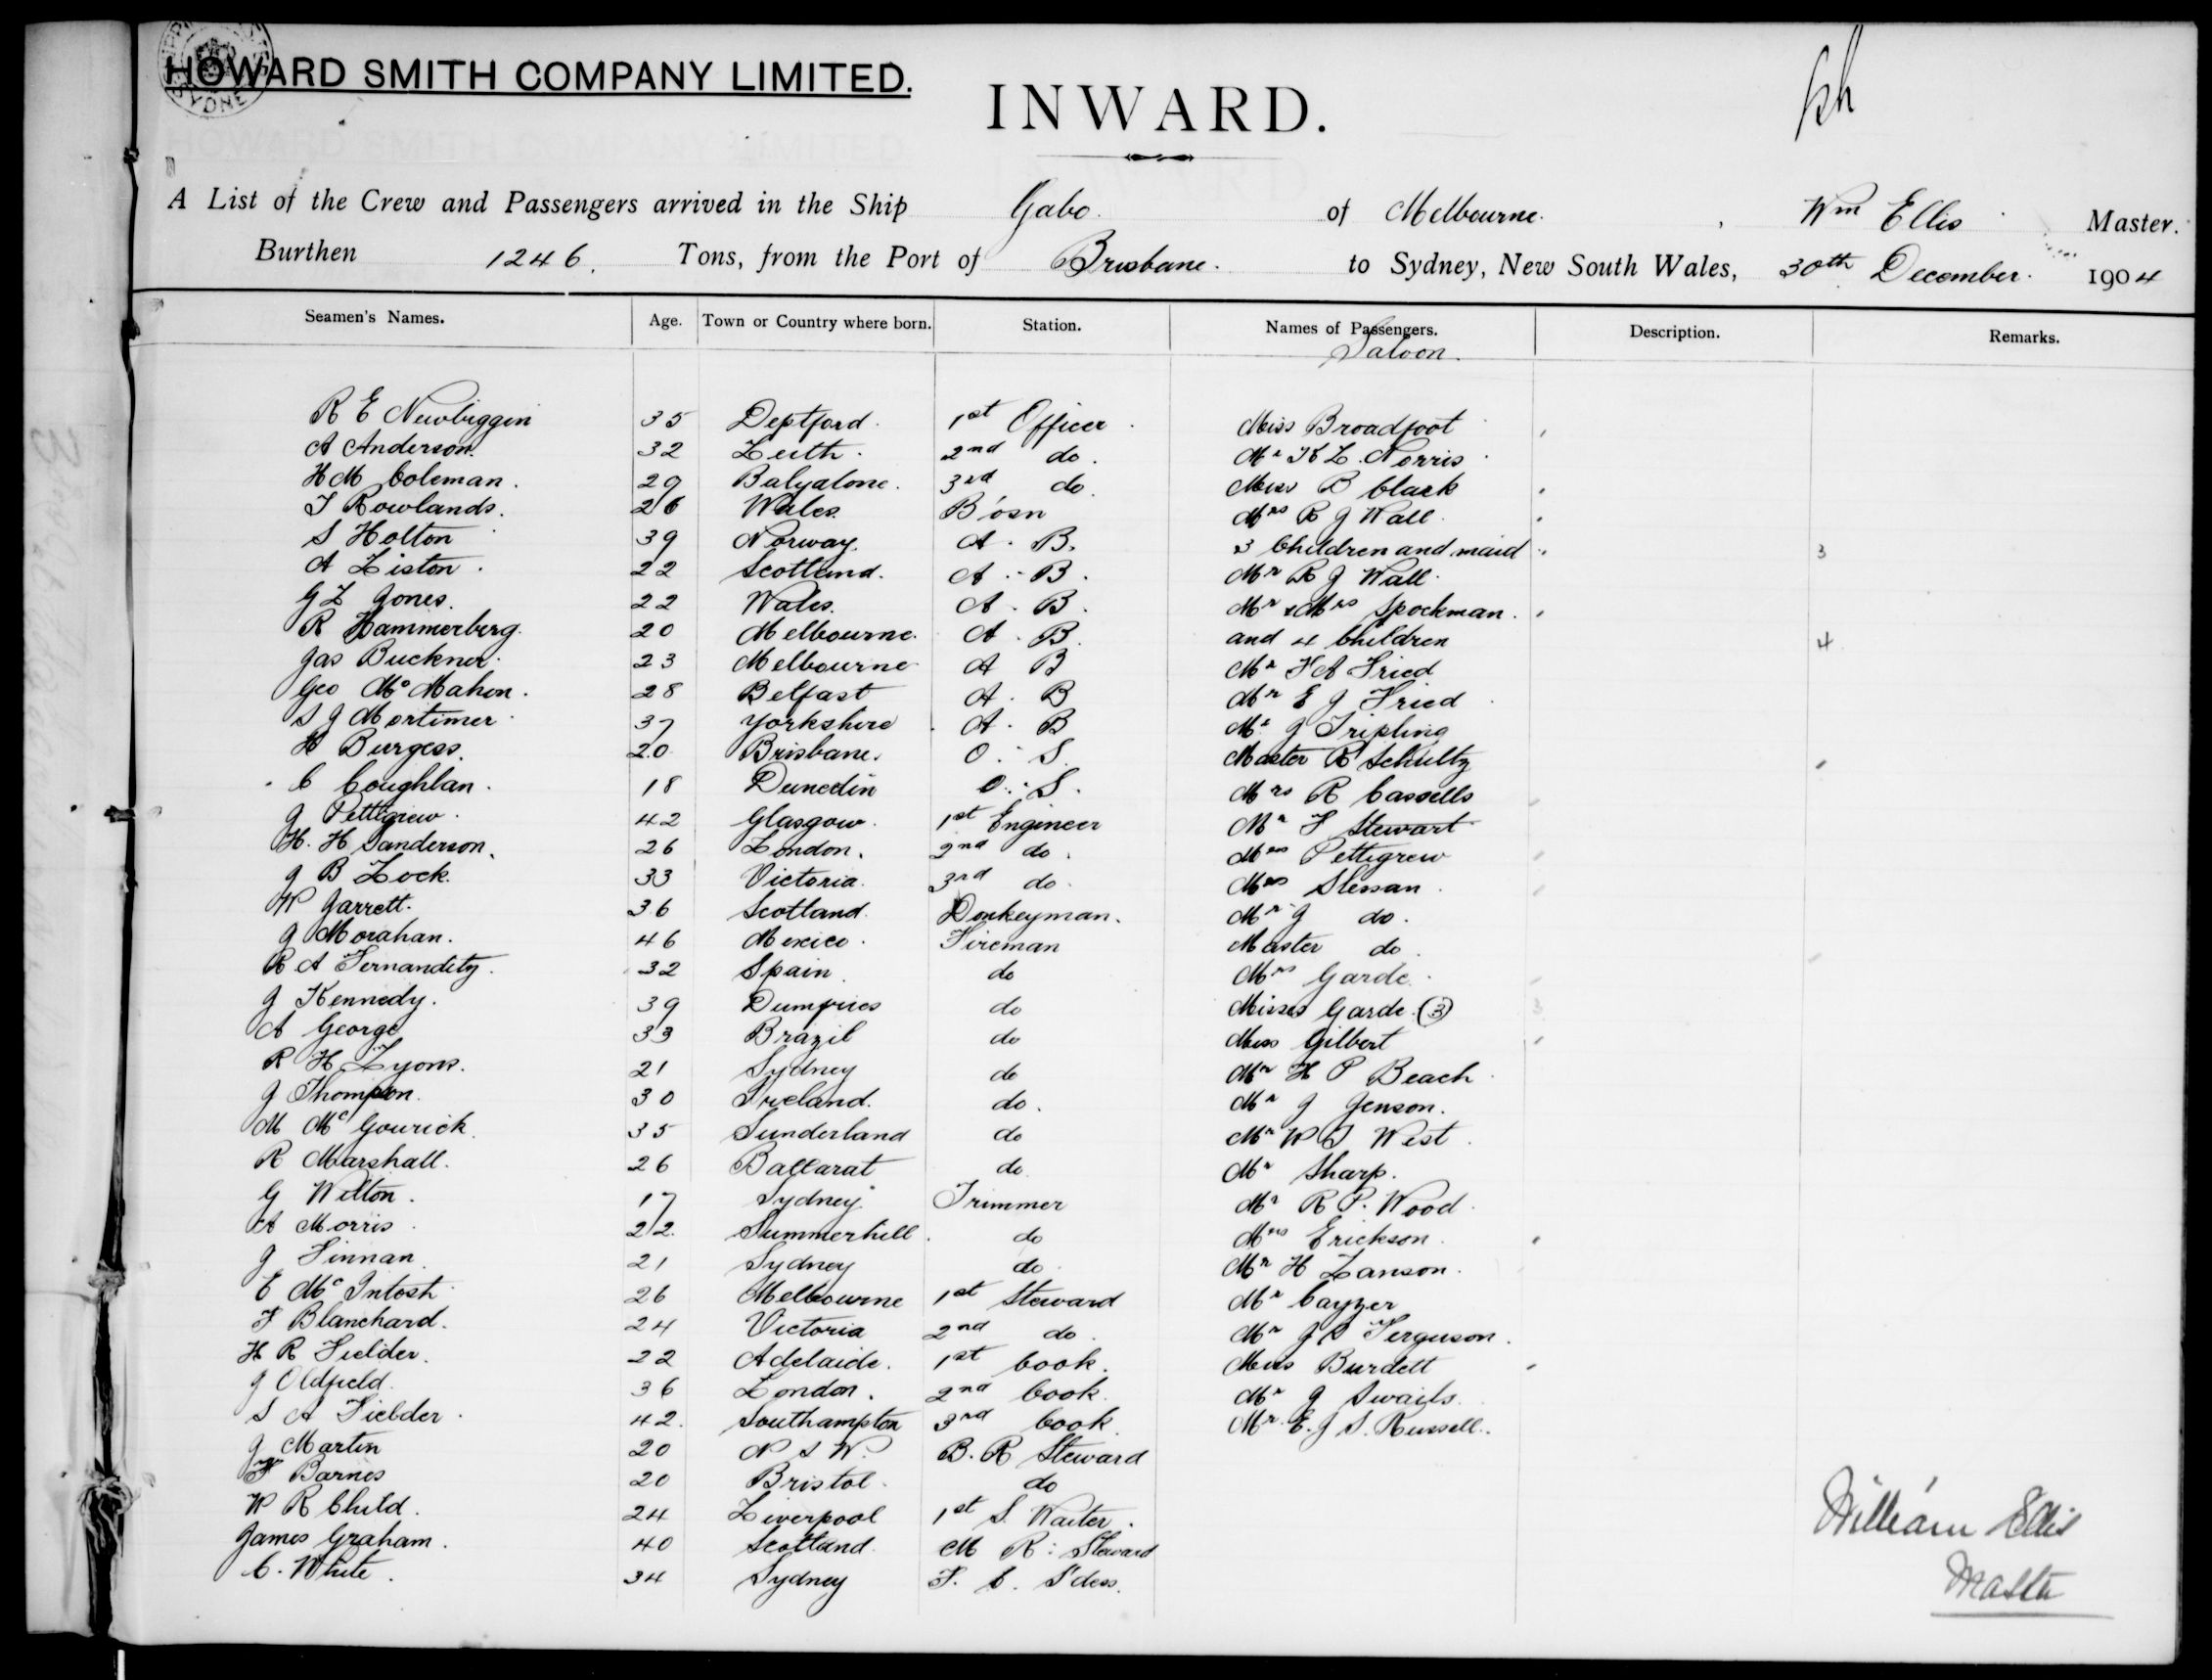 HOWARD SMITH COMPANY LIMITED.
INWARD.
A List of the Crew and Passengers arrived in the Ship Gabo. of Melbourne. , Wm Ellis Master.
Burthen 1246. Tons, from the Port of Brisbane. to Sydney, New South Wales, 30th December. 1904
Seamen's Names. Age. Town or Country where born. Station. Names of Passengers. Description. Remarks.
Saloon.
R E Newbiggin 35 Deptford. 1st Officer. Miss Broadfoot
A Anderson. 32 Leith. 2nd do. Mr K L. Norris
H M Coleman. 29 Balyalone. 3rd do. Miss B Clark
T Rowlands. 26 Wales. B'osn Mrs R J Wall.
S Holton 39 Norway. A. B. 3 Children and maid 3
A Liston. 22 Scotland. A. B. Mr R J Wall.
G L Jones. 22 Wales. A. B. Mr & Mrs Spockman.
R Hammerberg. 20 Melbourne. A. B. and 4 Children 4
Jas Buckner. 23 Melbourne A B Mr F A Fried
Geo McMahon. 28 Belfast A. B Mr E J Fried
S J Mortimer. 37 Yorkshire A. B Mr J Tripling
H Burgess. 20 Brisbane. O. S. Master R Schultz
C Coughlan. 18 Dunedin O. S. Mrs R Cassells
J Pettigrew. 42 Glasgow. 1st Engineer Mr F Stewart
H. H Sanderson. 26 London. 2nd do. Mrs Pettigrew
J B Lock. 33 Victoria. 3rd do. Mrs Slessan
W Garrett. 36 Scotland. Donkeyman. Mr J do.
J Morahan. 46 Mexico. Fireman Master do
R A Fernandity. 32 Spain. do Mrs Garde.
J Kennedy. 39 Dumfries do Misses Garde (3)
A George 33 Brazil do Miss Gilbert
R H Lyons. 21 Sydney do Mr H P Beach
J Thompson. 30 Ireland. do. Mr J Jenson.
M McGourick. 35 Sunderland do Mr W T West.
R Marshall. 26 Ballarat do Mr Sharp.
G Wilton. 17 Sydney Trimmer Mr R P. Wood
A Morris 22. Summerhill. do Mrs Erickson.
J Finnan. 21 Sydney do. Mr H Lanson.
E McIntosh 26 Melbourne 1st Steward Mr Cayzer
F Blanchard. 24 Victoria 2nd do. Mr J S Ferguson.
H R Fielder. 22 Adelaide. 1st Cook. Miss Burdett
J Oldfield. 36 London. 2nd Cook. Mr J Swails.
S A Fielder. 42. Southampton 3rd Cook. Mr. E. J S. Russell.
J Martin 20 N S W. B. R Steward
F Barnes 20 Bristol. do
W R Child. 24 Liverpool 1st S. Waiter.
James Graham. 40 Scotland. M R: Steward
C. White. 34 Sydney F. C. S'dess.
William Ellis
Master